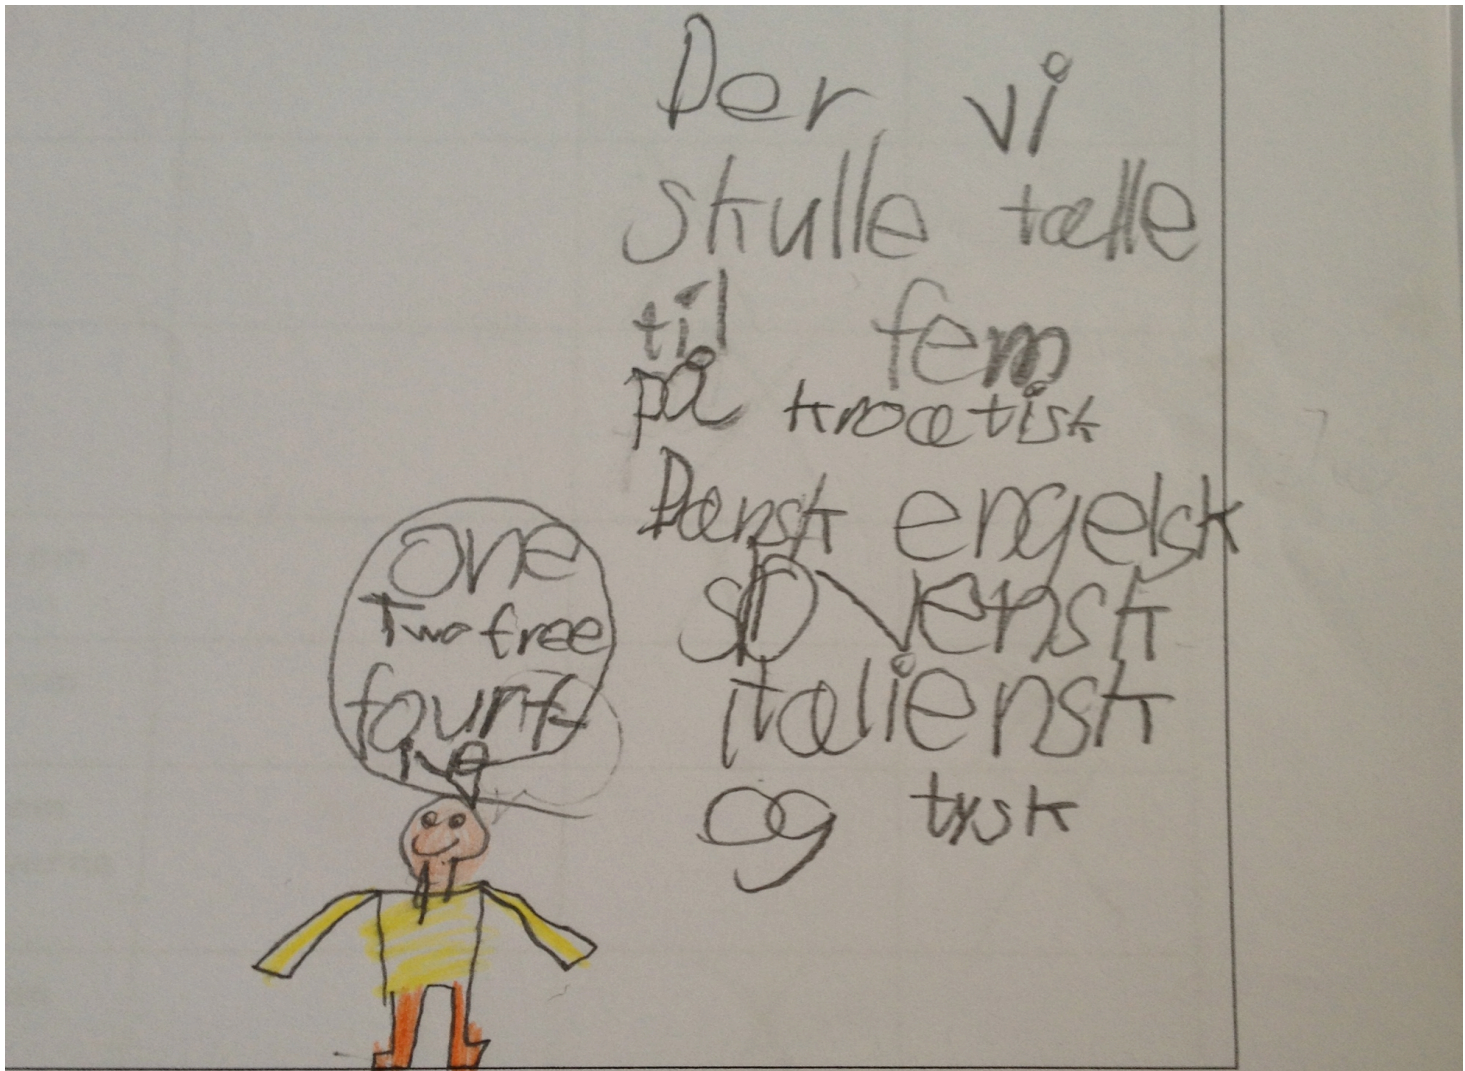 Der vi
skulle tælle
til fem
på kroatisk
Dansk engelsk
slovensk
italiensk
og tysk
one
Two free
four f
ive